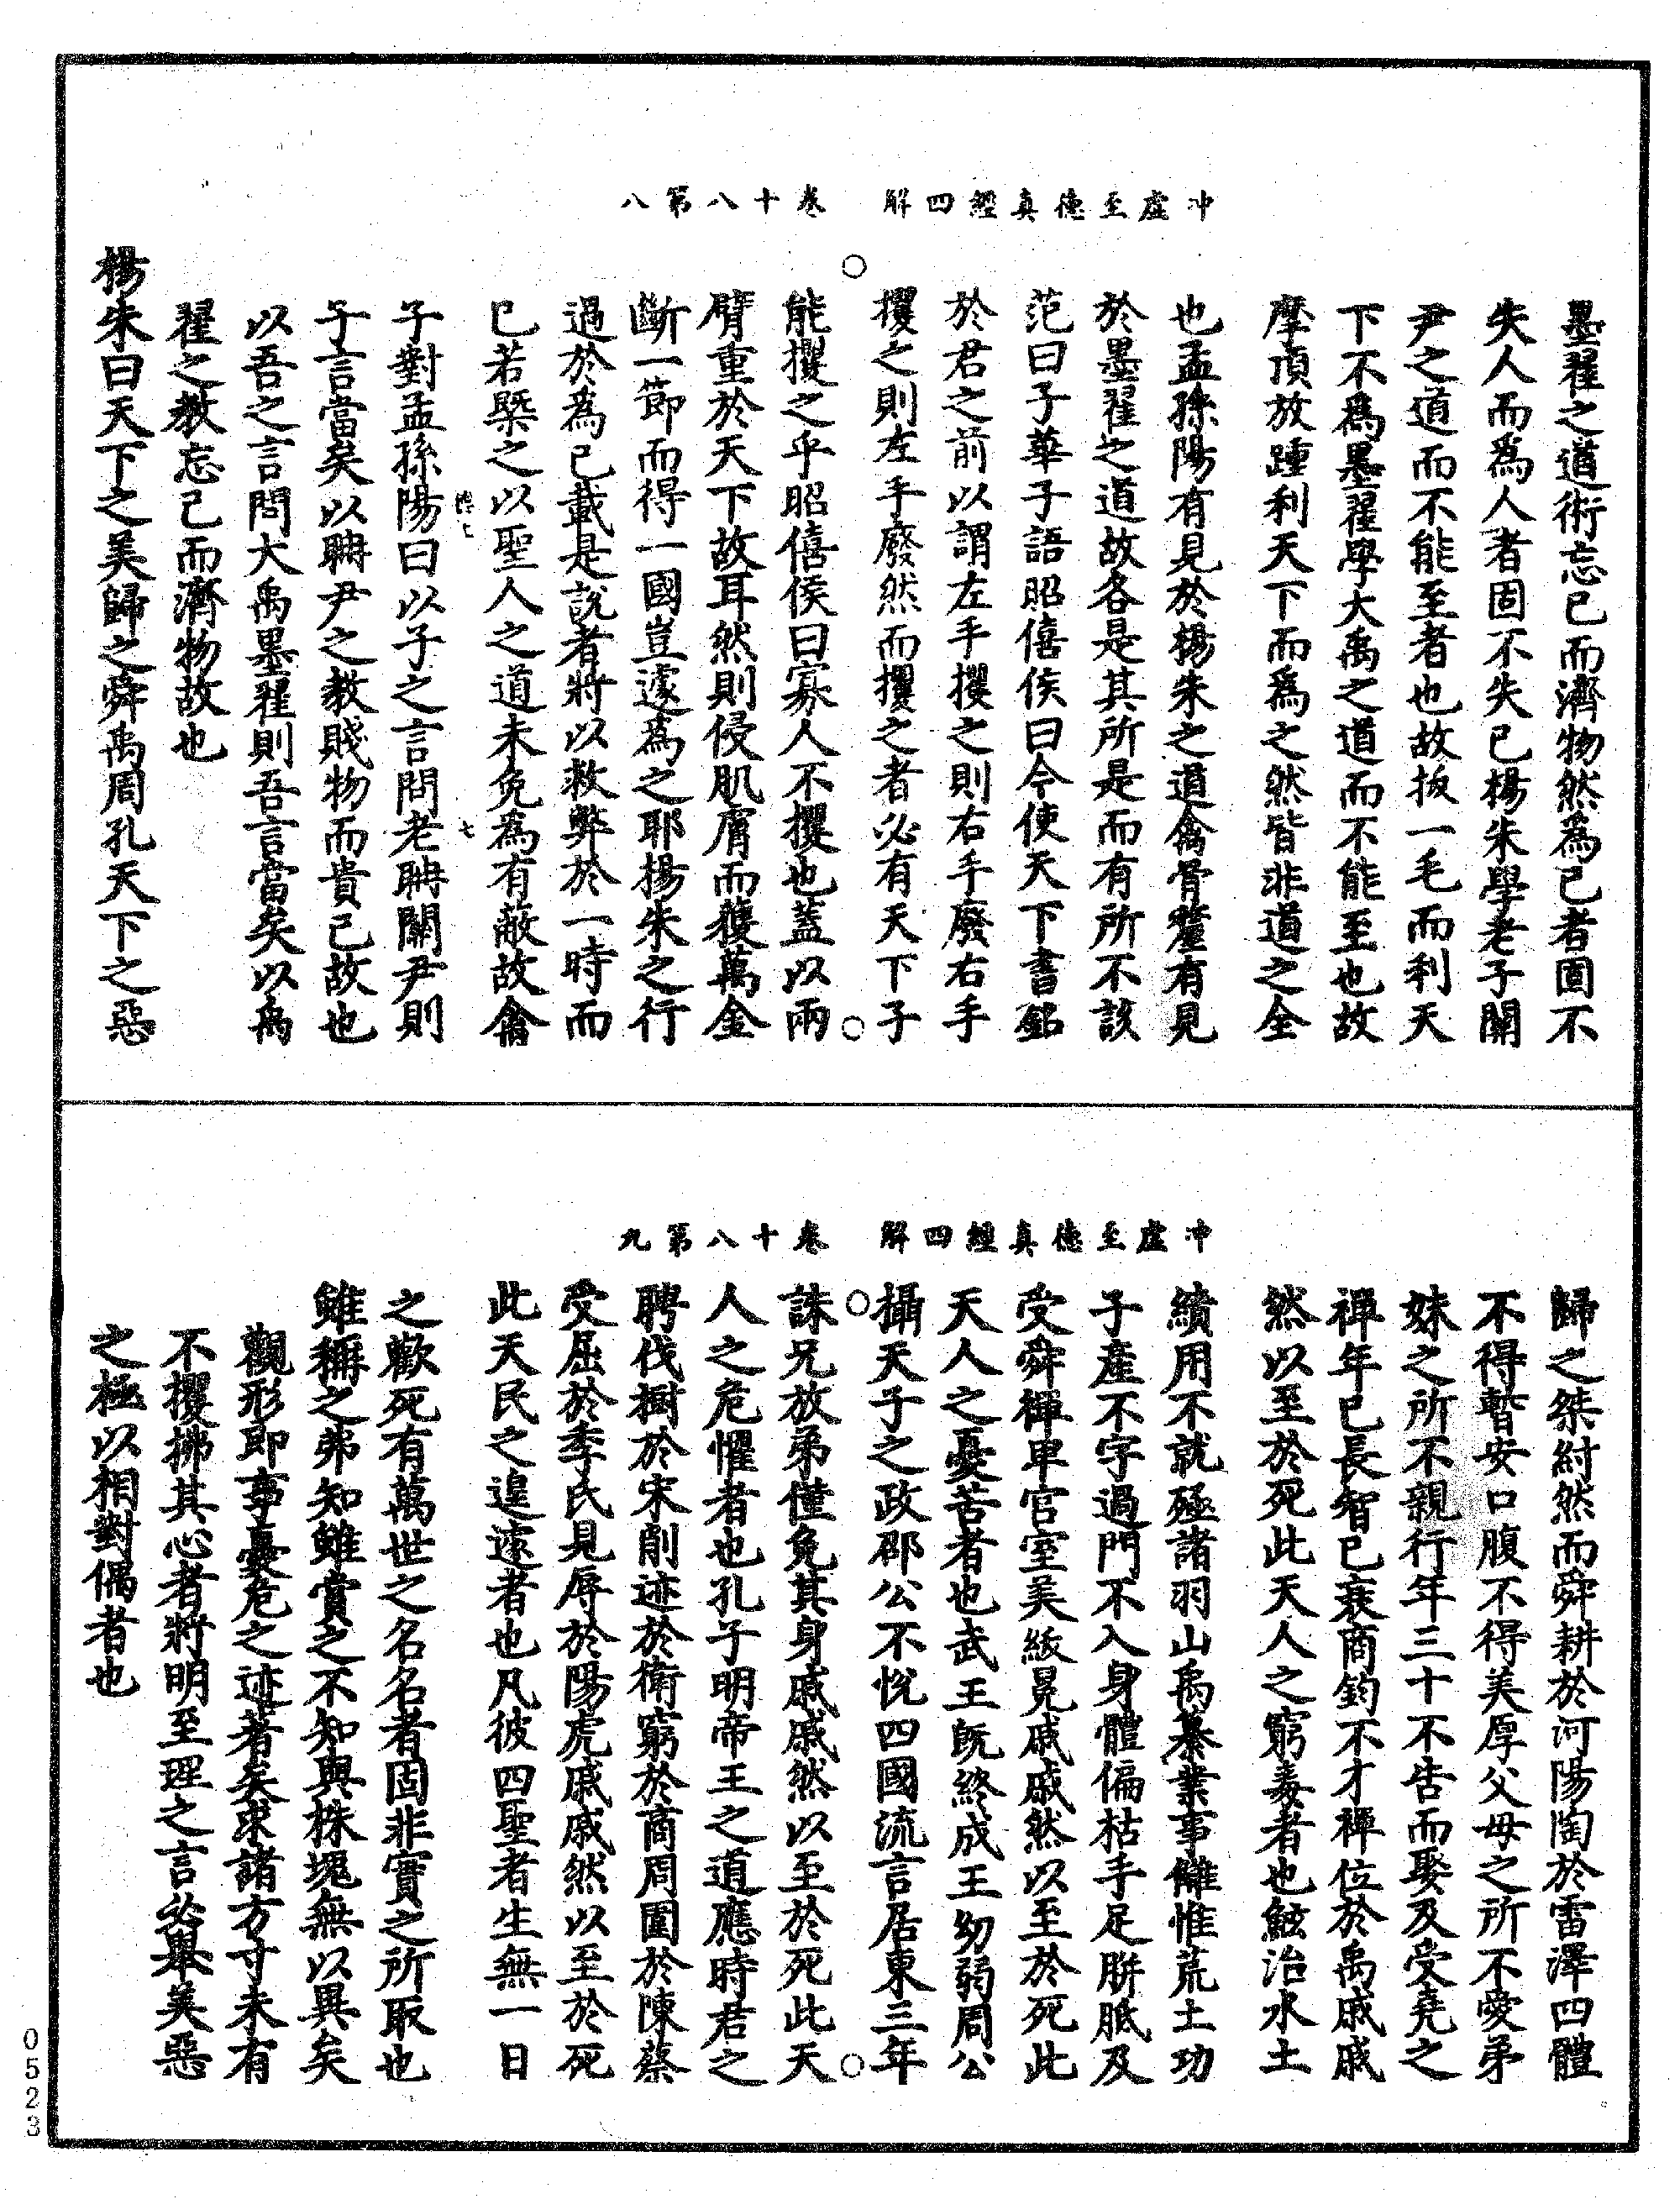 冲虛至德真經四解　卷十八第八
墨翟之道術忘己而濟物然為己者固不
失人而為人者固不失己楊朱學老子關
尹之道而不能至者也故拔一毛而利天
下不為墨翟學大禹之道而不能至也故
摩頂放踵利天下而為之然皆非道之全
也孟孫陽有見於楊朱之道禽骨釐有見
於墨翟之道故各是其所是而有所不該
范曰子華子語昭僖侯曰今使天下書銘
於君之前以謂左手攫之則右手廢右手
攫之則左手廢然而攫之者必有天下子
能攫之乎昭僖侯曰寡人不攫也蓋以兩
臂重於天下故耳然則侵肌膚而獲萬金
斷一節而得一國豈遽為之耶楊朱之行
過於為己載是說者將以救弊於一時而
已若槩之以聖人之道未免為有敝故禽
子對孟孫陽曰以子之言問老聃關尹則
子言當矣以聃尹之教賤物而貴己故也
以吾之言問大禹墨翟則吾言當矣以禹
翟之教忘己而濟物故也
楊朱曰天下之美歸之舜禹周孔天下之惡
七
冲虛至德真經四解　卷十八第九
歸之桀紂然而舜耕於河陽陶於雷澤四體
不得暫安口腹不得美厚父母之所不愛弟
妹之所不親行年三十不告而娶及受堯之
禪年已長智已衰商鈞不才禪位於禹戚戚
然以至於死此天人之窮毒者也鮌治水土
績用不就殛諸羽山禹纂業事讎惟荒土功
子產不字過門不入身體偏枯手足胼胝及
受舜禪卑宮室美紱冕戚戚然以至於死此
天人之憂苦者也武王既終成王幼弱周公
攝天子之政邵公不悅四國流言居東三年
誅兄放弟僅免其身戚戚然以至於死此天
人之危懼者也孔子明帝王之道應時君之
聘伐樹於宋削迹於衛窮於商周圍於陳蔡
受屈於季氏見辱於陽虎戚戚然以至於死
此天民之遑遽者也凡彼四聖者生無一日
之歡死有萬世之名名者固非實之所取也
雖稱之弗知雖賞之不知與株塊無以異矣
觀形即事憂危之迹著矣求諸方寸未有
不攖拂其心者將明至理之言必舉美惡
之極以相對偶者也
0523